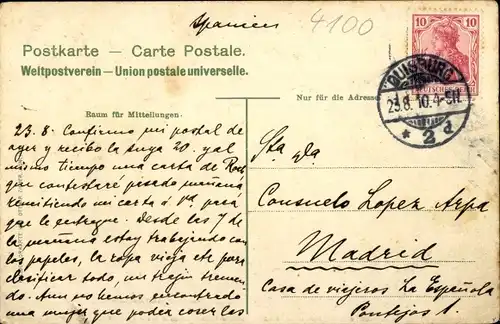 Spanien
4100
Postkarte — Carte Postale.
Weltpostverein — Union postale universelle.
10 10
DEUTSCHES REICH
DUISBURG
23.8.10.4-5N.
* 2 d
Nur für die Adresse
Raum für Mitteilungen:
23.8. Confirmo mi postal de
ayer y recibo la suya 20. y al
mismo tiempo una carta de
que contestaré pasado mañana
remitiendo mi carta á Vd. para
que le entregue. Desde las 7 de
la mañana estoy trabajando con
los papeles, la ropa vieja etc para
clasificar todo, un trajin tremen-
do. Aun no hemos encontrado
una mujer que poder coser los
Sta. Da
Consuelo Lopez Arpa
Madrid
Casa de viajeros La Española
Pontejos 1.